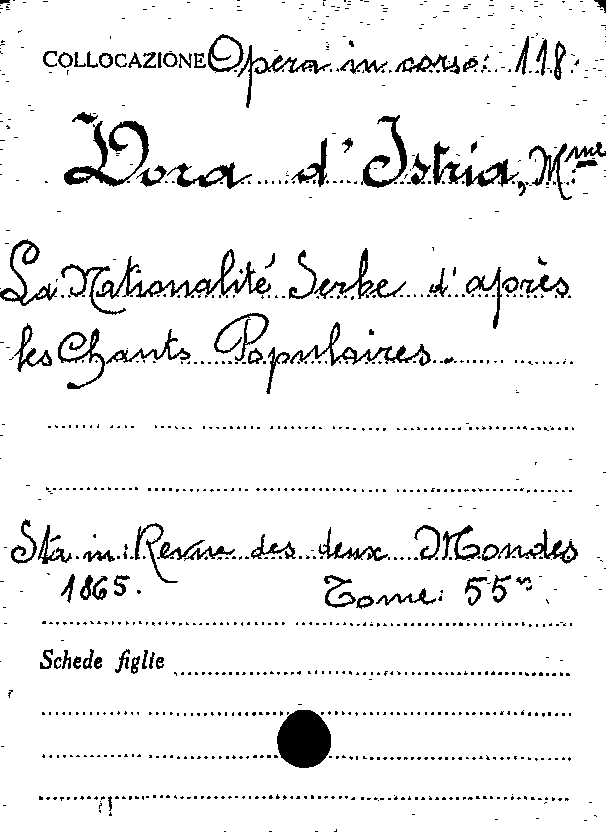 COLLOCAZIONE Opera in corso: 118.
Dora d'Istria, Mme
La Nationalité Serbe d'après
les Chants Populaires.
Sta in: Revue des deux Mondes
1865. Tome: 55m.
Schede figlie